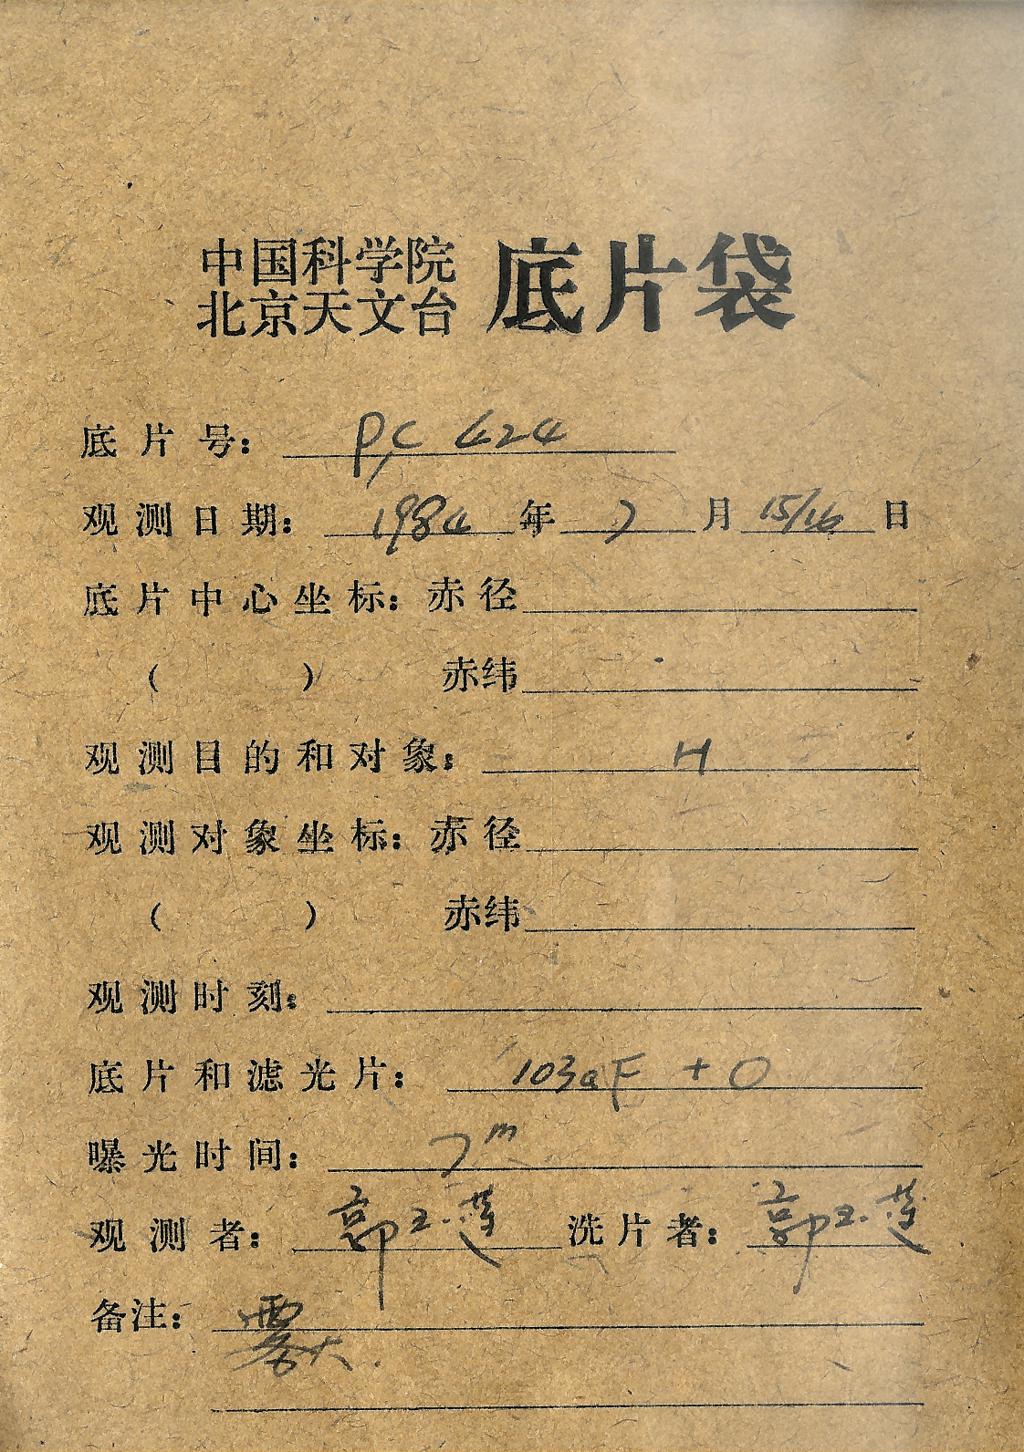 中国科学院
北京天文台 底片袋
底片号: PC 424
观测日期: 1984 年 7 月 15/16 日
底片中心坐标: 赤径
( ) 赤纬
观测目的和对象: H
观测对象坐标: 赤径
( ) 赤纬
观测时刻:
底片和滤光片: 103aF + O
曝光时间: 7m
观测者: 郭玉莲 洗片者: 郭玉莲
备注:
雾大.